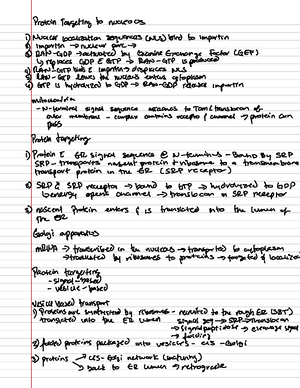 Protein Targeting to nucleos
1) Nuclear localization sequences (NLS) bind to importin
2) importin → nuclear pore →
3) RAN-GDP → activated by Guanine Exchange Factor (GEF)
↳ replaces GDP & GTP → RAN-GTP is produced
4) RAN-GTP binds importin → displaces NLS
5) RAN-GTP leaves the nucleus enters cytoplasm
6) GTP is hydrolized to GDP → RAN-GDP release importin
mitochondria
- N-terminal signal sequence attaches to Tom translocan of
outer membrane - complex contains receptor & channel → protein can
pass
Protein targeting
1) Protein & ER signal sequence @ N-terminus - bound by SRP
SRP - transports nascent protein & ribosome to a transmembrane
transport protein in the ER (SRP receptor)
2) SRP & SRP receptor → bond to GTP → hydrolized to GDP
energy opens channel → translocan or SRP receptor
3) nascent protein enters & is translated into the lumen of
the ER
Golgi apparatus
mRNA → transcribed in the nucleus → transported to cytoplasm
→ translated by ribosomes to proteins → targeted & localized
Protein targeting
- signal-based
- vesicle-based
Vesicle based transport
1) Proteins are synthesized by ribosomes - recruited to the rough ER
translated into the ER lumen
signal seq → SRP → translocan
→ signal peptidase → cleavage
→ folding
2) proteins packaged into vesicles - cis-Golgi
3) proteins → cis-Golgi network
↳ back to ER lumen → retrograde